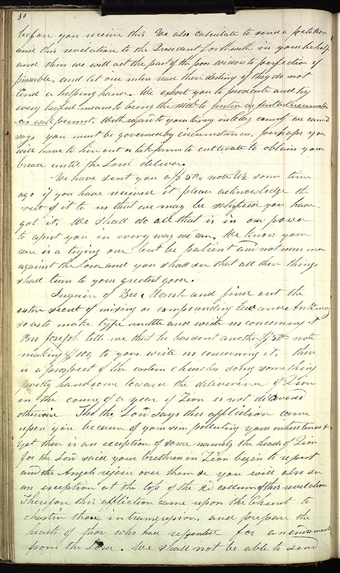 30
before you receive this We also calculate to send a petition
and this revelation to the President forthwith in your behalf
and then we will act the part of the poor widow to perfection if
possible, and let our rulers read their destiny if they do not
lend a helping hand. We exhort you to prosecute and try
every lawful means to bring the mob to justice as fast as circumstances
will permit. With respect to your tarrying in Clay county we cannot
say you must be governed by circumstances, perhaps you
will have to hire out & take farms to cultivate to obtain your
bread until the Lord deliver.
We have sent you a $50 note some time
ago if you have received it please acknowledge the
receipt of it to us that we may be satisfied you have
got it. We shall do all that is in our power
to assist you in every way we can. We know your
case is a trying one but be patient and not murmur
against the Lord and you shall see that all these things
shall turn to your greatest good.
Inquire of Bro Marsh and find out the
entire secret of mixing or compounding lead and antimony
so as to make type mettle and write us concerning it
Bro Joseph tells me that he has sent another $50 note
making $100, to you write us concerning it, there
is a prospect of the eastern churches doing something
pretty handsome towards the deliverance of Zion
in the course of a year if Zion is not delivered
otherwise. Tho the Lord says this affliction came
upon you because of your sins polluting your inheritances &c
yet there is an exception of some namely the heads of Zion
for the Lord said your brethren in Zion begin to repent
and the Angels rejoice over them &c you will also see
an exception at the top of the 2d collumn of this revelation
Therefore this affliction came upon the Church to
chasten those in transgression, and prepare the
hearts of those who had repented for an endowment
from the Lord. We shall not be able to send